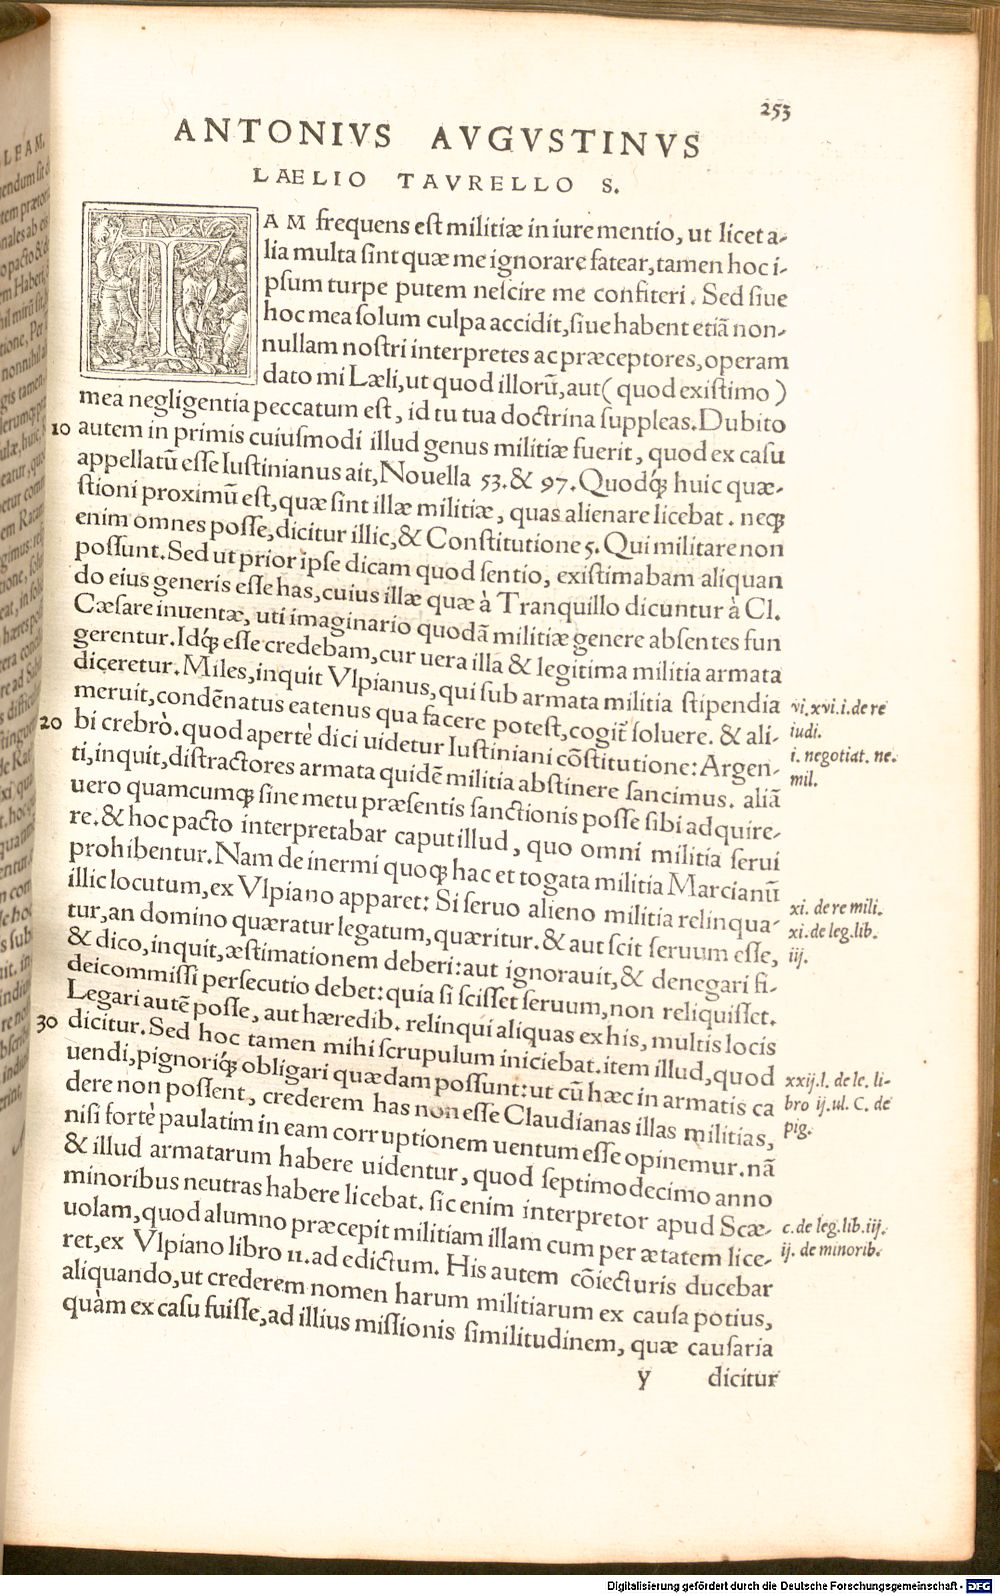 253
ANTONIVS AVGVSTINVS
LAELIO TAVRELLO S.
TAM frequens est militiæ in iure mentio, ut licet a-
lia multa sint quæ me ignorare fatear, tamen hoc i-
psum turpe putem nescire me confiteri. Sed siue
hoc mea solum culpa accidit, siue habent etiã non-
nullam nostri interpretes ac præceptores, operam
dato mi Læli, ut quod illorũ, aut (quod existimo)
mea negligentia peccatum est, id tu tua doctrina suppleas. Dubito
10 autem in primis cuiusmodi illud genus militiæ fuerit, quod ex casu
appellatũ esse Iustinianus ait, Nouella 53. & 97. Quodq́; huic quæ-
stioni proximũ est, quæ sint illæ militiæ, quas alienare licebat. neq;
enim omnes posse, dicitur illic, & Constitutione 5. Qui militare non
possunt. Sed ut prior ipse dicam quod sentio, existimabam aliquan
do eius generis esse has, cuius illæ quæ à Tranquillo dicuntur à Cl.
Cæsare inuentæ, uti imaginario quodã militiæ genere absentes fun
gerentur. Idq́; esse credebam, cur uera illa & legitima militia armata
diceretur. Miles, inquit Vlpianus, qui sub armata militia stipendia
meruit, condẽnatus eatenus qua facere potest, cogit̃ soluere. & ali-
20 bi crebrò. quod apertè dici uidetur Iustiniani cõstitutione: Argen-
ti, inquit, distractores armata quidẽ militia abstinere sancimus. aliã
uero quamcumq; sine metu præsentis sanctionis posse sibi adquire-
re. & hoc pacto interpretabar caput illud, quo omni militia serui
prohibentur. Nam de inermi quoq; hac et togata militia Marcianũ
illic locutum, ex Vlpiano apparet: Si seruo alieno militia relinqua-
tur, an domino quæratur legatum, quæritur. & aut scit seruum esse,
& dico, inquit, æstimationem deberi: aut ignorauit, & denegari fi-
deicommissi persecutio debet: quia si scisset seruum, non reliquisset.
Legari autẽ posse, aut hæredib. relinqui aliquas ex his, multis locis
30 dicitur. Sed hoc tamen mihi scrupulum iniciebat. item illud, quod
uendi, pignoriq́; obligari quædam possunt: ut cũ hæc in armatis ca
dere non possent, crederem has non esse Claudianas illas militias,
nisi fortè paulatim in eam corruptionem uentum esse opinemur. nã
& illud armatarum habere uidentur, quod septimodecimo anno
minoribus neutras habere licebat. sic enim interpretor apud Scæ-
uolam, quod alumno præcepit militiam illam cum per ætatem lice-
ret, ex Vlpiano libro 11. ad edictum. His autem cõiecturis ducebar
aliquando, ut crederem nomen harum militiarum ex causa potius,
quàm ex casu fuisse, ad illius missionis similitudinem, quæ causaria
y dicitur
vi. xvi. i. de re
iudi.
i. negotiat. ne.
mil.
xi. de re mili.
xi. de leg. lib.
iij.
xxij. l. de le. li-
bro ij. ul. C. de
pig.
c. de leg. lib. iij.
ij. de minorib.
Digitalisierung gefördert durch die Deutsche Forschungsgemeinschaft - DFG